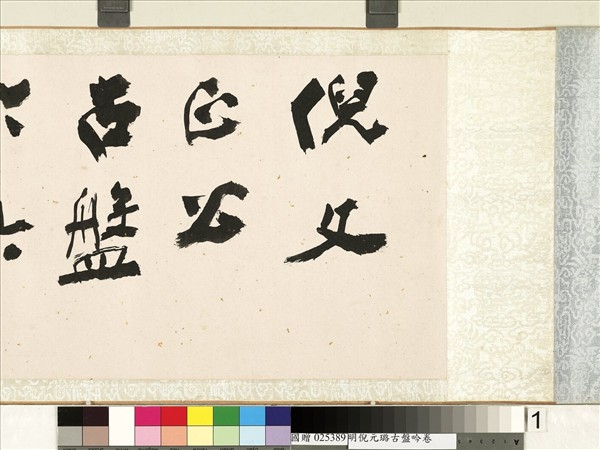 倪文
正公
古盤
國贈 025389 明倪元璐古盤吟卷
1